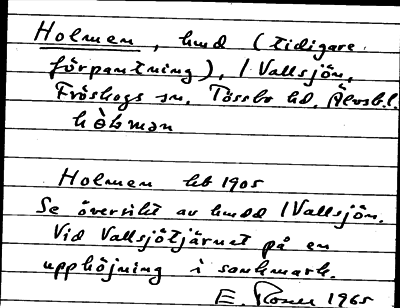 Holmen, hmd (tidigare
förpantning), i Vallsjön,
Fröskogs sn, Tössbo hd, Älvsb.l.
hòlman
Holmen hb 1905
Se översikt av hmdd i Vallsjön.
Vid Vallsjötjärnet på en
upphöjning i sankmark.
E. 1965